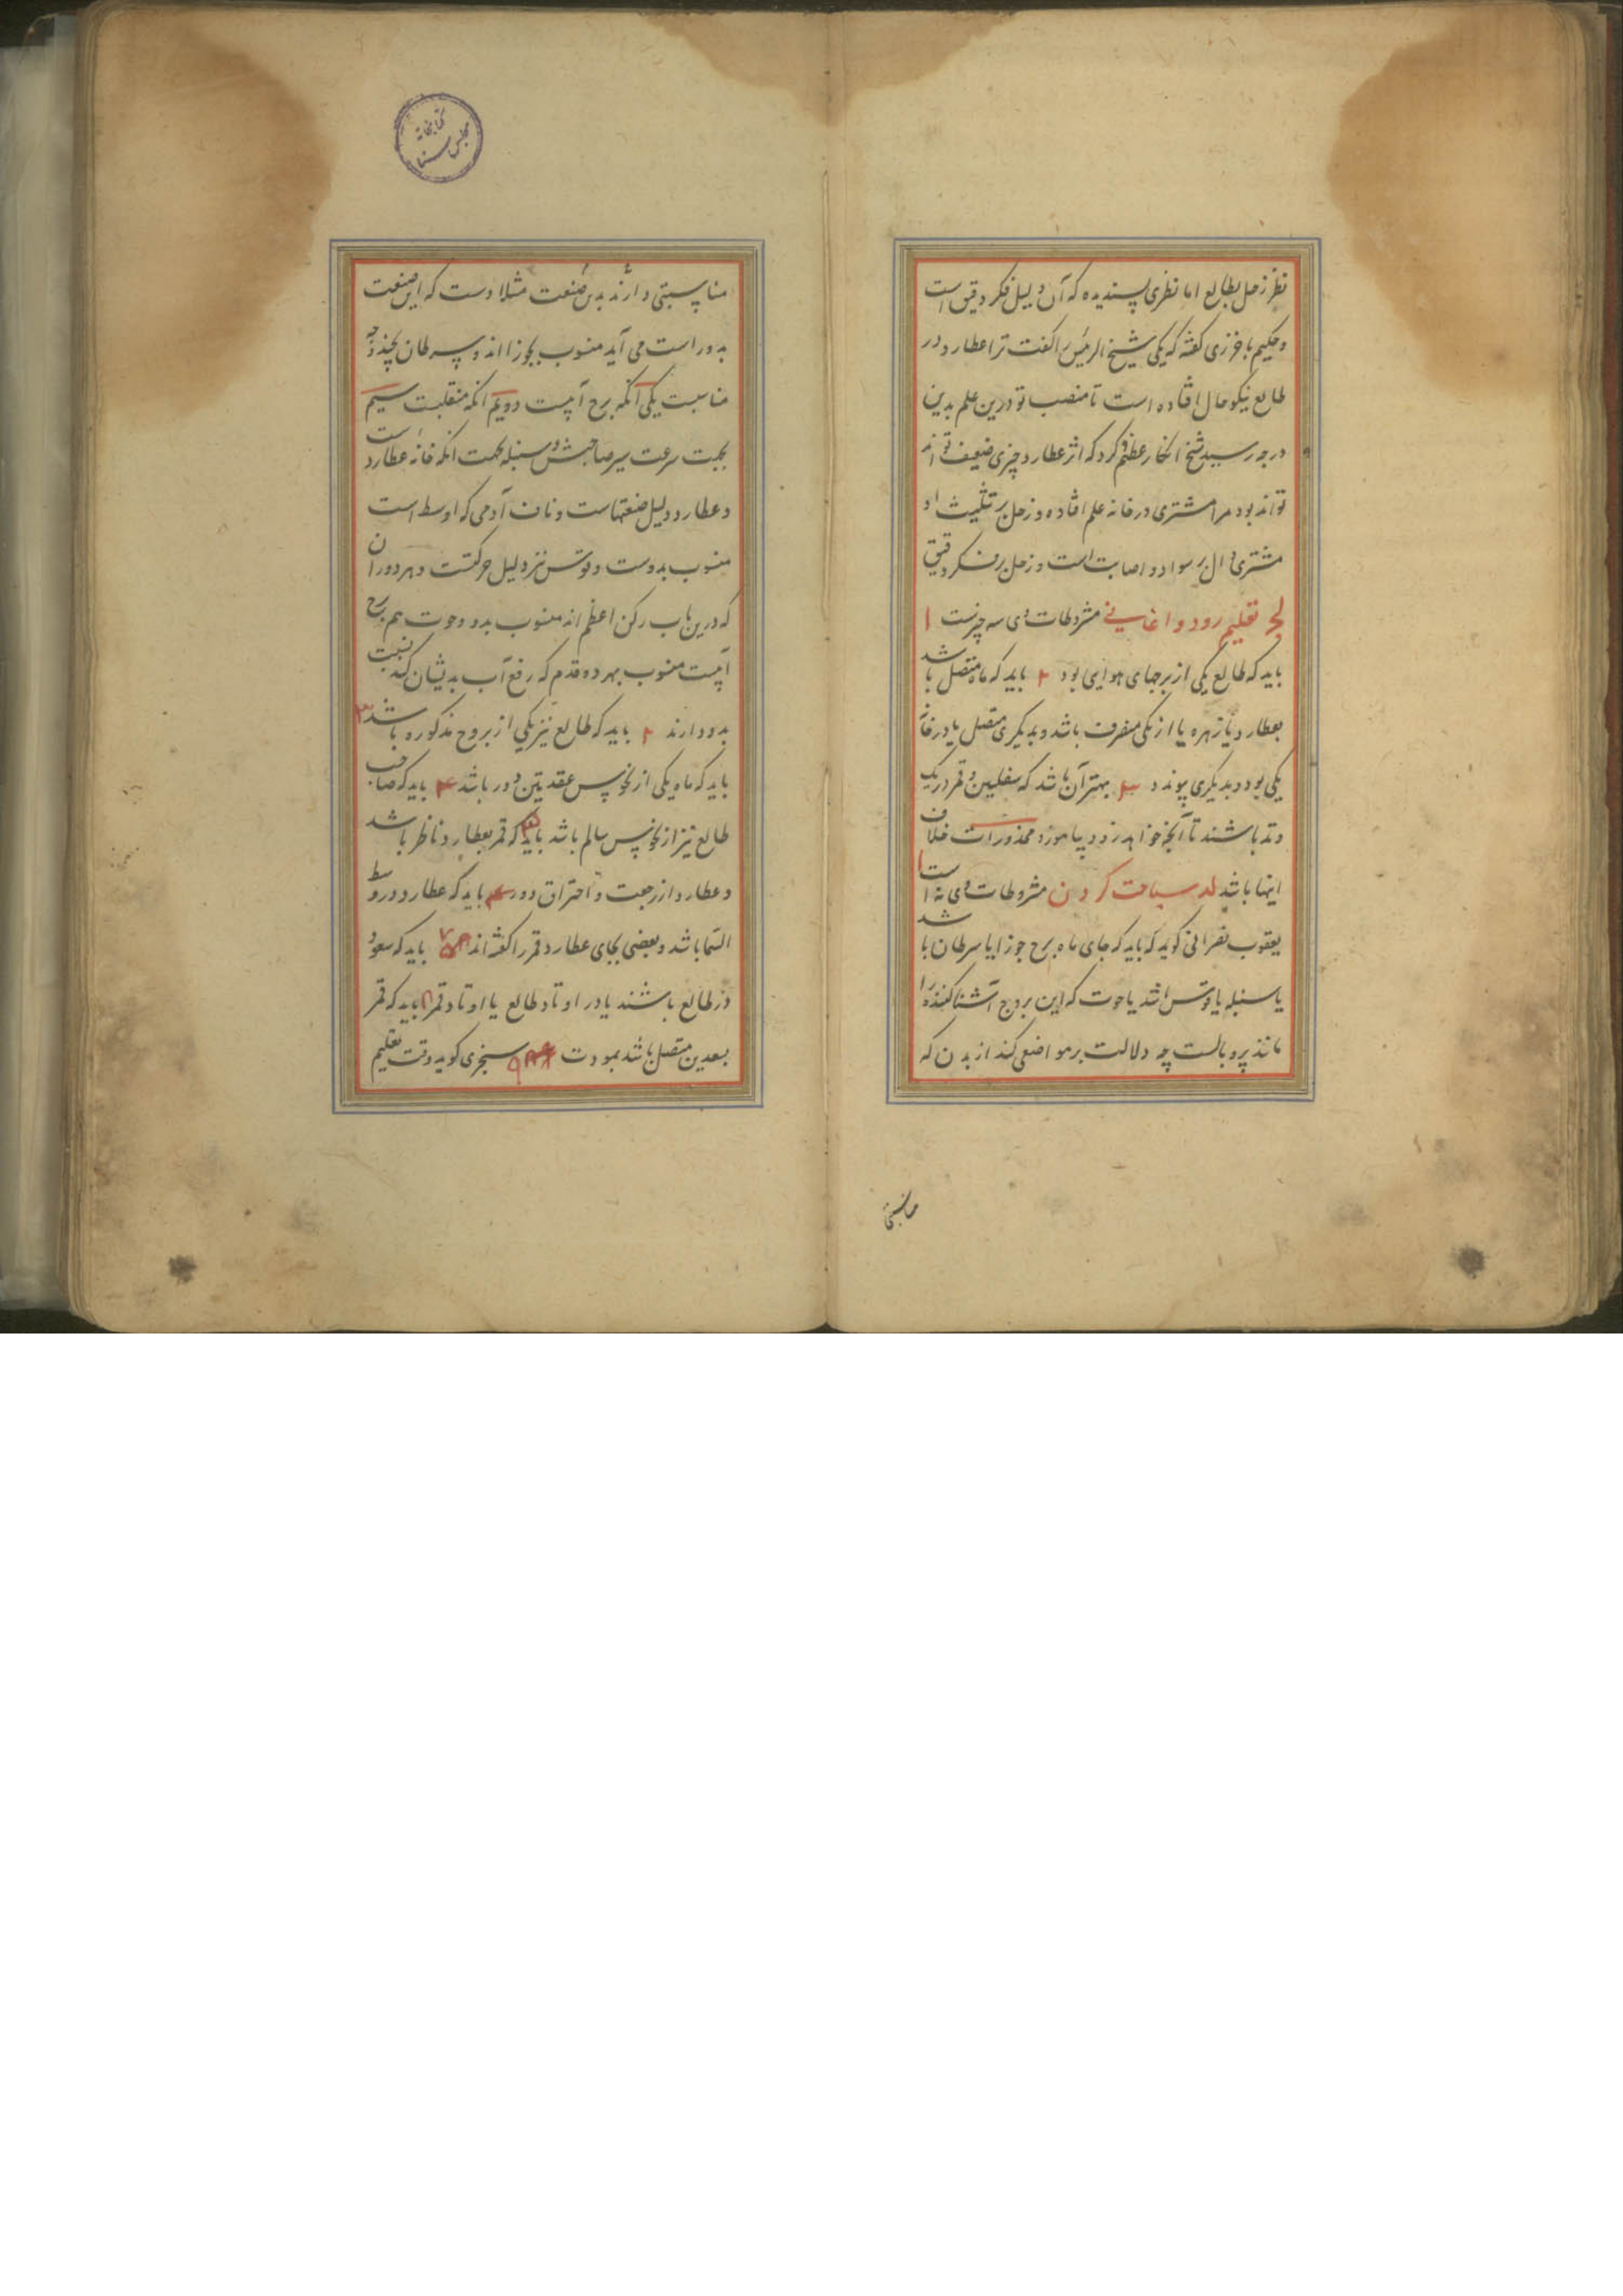 نظر زحل بطالع اما نظری پسندیده که آن دلیل فکر دقیق است
و حکیم باخرزی گفته که یکی شیخ الرئیس را گفت ترا عطارد در
طالع نیکو حال افتاده است تا منصب تو درین علم بدین
درجه رسید شیخ انکار عظیم کرد که اثر عطارد چیزی ضعیف تواند
تواند بود مرا مشتری در خانه علم افتاده و زحل بر تثلیث او
مشتری دال بر سواد و اصابت است و زحل بر فکر دقیق
لج تعلیم رود و اغانی مشروطات وی سه چیزست ۱
باید که طالع یکی از برجهای هوایی بود ۲ باید که ماه متصل باشد
بعطارد یا زهره یا از یکی منصرف باشد و بدیگری متصل یا در خانه
یکی بود و بدیگری پیوندد ۳ بهتر آن باشد که سفلیین و قمر در یک
وتد باشند تا آنچه خواهد زود بیاموزد محذورات خلاف
اینها باشد لد سباحت کردن مشروطات وی نه است ۱
یعقوب نصرانی گوید که باید که جای ماه برج جوزا یا سرطان باشد
یا سنبله یا قوس باشد یا حوت که این بروج آشنا کننده را
مانند پر و بالست چه دلالت بر مواضعی کند از بدن که
مناسبتی
کتابخانه
مجلس سنا
مناسبتی دارند بدین صنعت مثلا دست که این صنعت
بدو راست می آید منسوب بجوزا اند و سرطان بچند وجه
مناسبت یکی آنکه برج آبیست دویم انکه منقلبست سیم
بجهت سرعت سیر صاحبش و سنبله بجهت انکه خانه عطارد است
و عطارد دلیل صنعتهاست و ناف آدمی که اوسط است
منسوب بدوست و قوس نیز دلیل حرکتست و هر دو ران
که درین باب رکن اعظم اند منسوب بدو و حوت هم برج
آبیست منسوب بهر دو قدم که رفع آب بدیشان کنند نسبت
بدو دارند ۲ باید که طالع نیز یکی از بروج مذکوره باشد ۳
باید که ماه یکی از نحوس عقدتین دور باشد ۴ باید که صاحب
طالع نیز از نحوس سالم باشد باید که قمر بعطارد ناظر باشد
و عطارد از رجعت و احتراق دور باید که عطارد در وسط
السما باشد و بعضی بجای عطارد قمر را گفته اند ۷ باید که سعود
در طالع باشند یا در اوتاد طالع یا اوتاد قمر ۸ باید که قمر
بسعدین متصل باشد بمودت ۹ سجزی گوید وقت تعلیم